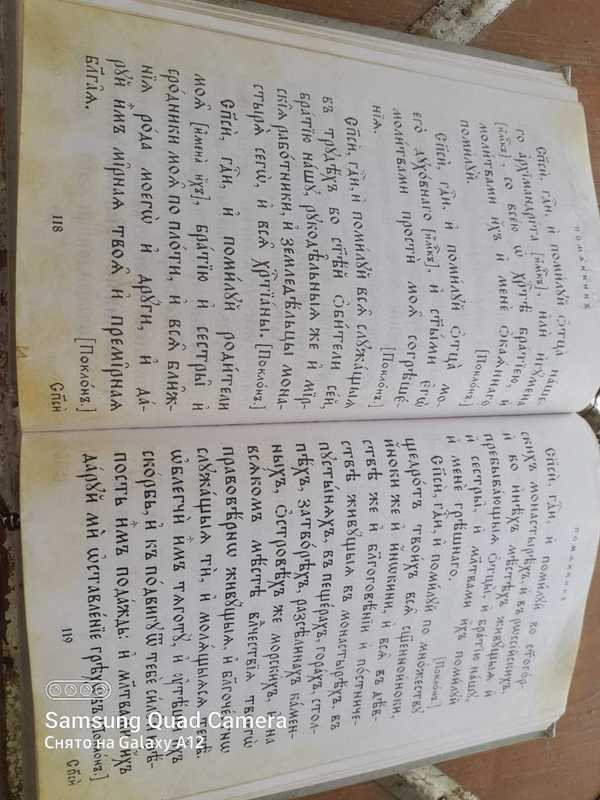 ПОМѦННИКЪ
Сп҃сѝ, гд҃и, и҆ поми́лꙋй ѻ҆тца̀ на́ше-
го а҆рхїмандрі́та [и҆́м҃къ], и҆лѝ и҆гꙋ́мена
[и҆́м҃къ], со все́ю ѡ҆ хр҃тѣ̀ бра́тїею, и҆
моли́твами и҆́хъ и҆ менѐ ѻ҆каѧ́ннаго
поми́лꙋй. [Покло́нъ.]
Сп҃сѝ, гд҃и, и҆ поми́лꙋй ѻ҆тца̀ мо-
его̀ дꙋхо́внаго [и҆́м҃къ], и҆ ст҃ы́ми є҆гѡ̀
моли́твами простѝ моѧ̑ согрѣше́-
нїѧ. [Покло́нъ.]
Сп҃сѝ, гд҃и, и҆ поми́лꙋй всѧ̑ слꙋжа́щыѧ
въ трꙋдѣ́хъ во ст҃ѣ́й ѻ҆би́тели се́й,
бра́тїю на́шꙋ, рꙋкодѣ́льныѧ же и҆ мїр-
скі́ѧ рабо́тники, и҆ земледѣ́льцы мона-
стырѧ̀ сегѡ̀, и҆ всѧ̑ хр҃тїа́ны. [Покло́нъ.]
Сп҃сѝ, гд҃и, и҆ поми́лꙋй роди́тели
моѧ̑ [и҆мена̀ и҆́хъ], бра́тїю и҆ сестры̑ и҆
сро́дники моѧ̑ по пло́ти, и҆ всѧ̑ бли́ж-
нїѧ ро́да моегѡ̀ и҆ дрꙋ́ги, и҆ да́-
рꙋй и҆̀мъ ми̑рнаѧ твоѧ̑ и҆ преми̑рнаѧ
бл҃га̑ѧ. [Покло́нъ.]
118 Сп҃сѝ
ПОМѦННИКЪ
Сп҃сѝ, гд҃и, и҆ поми́лꙋй во ст҃ого́р-
скихъ монастырѣ́хъ, и҆ въ рѡссі́йскихъ,
и҆ во и҆нѣ́хъ мѣ́стѣхъ живꙋ́щыѧ и҆
пребыва́ющыѧ ѻ҆тцы̀, и҆ бра́тїю на́шꙋ,
и҆ сестры̑, и҆ мл҃твами и҆́хъ поми́лꙋй
и҆ менѐ грѣ́шнаго. [Покло́нъ.]
Сп҃сѝ, гд҃и, и҆ поми́лꙋй по мно́жествꙋ
щедро́тъ твои́хъ всѧ̑ сщ҃енноино́ки,
и҆но́ки же и҆ и҆нѡ́кини, и҆ всѧ̑ въ дѣ́в-
ствѣ же и҆ бл҃гоговѣ́нїи и҆ по́стниче-
ствѣ живꙋ́щыѧ въ монастырѣ́хъ, въ
пꙋсты́нѧхъ, въ пеще́рахъ, гора́хъ, стол-
пѣ́хъ, затво́рѣхъ, разсѣ́линахъ ка́мен-
ныхъ, ѻ҆́стровѣхъ же морски́хъ, и҆ на
всѧ́комъ мѣ́стѣ влады́чествїѧ твоегѡ̀
правовѣ́рнѡ живꙋ́щыѧ, и҆ бл҃гоче́стнѡ
слꙋжа́щыѧ тѝ, и҆ молѧ́щыѧсѧ тебѣ̀:
ѡ҆блегчѝ и҆̀мъ тѧготꙋ̀, и҆ ᲂу҆тѣ́ши и҆́хъ
ско́рбь, и҆ къ по́двигꙋ ѡ҆ тебѣ̀ си́лꙋ и҆ крѣ́-
пость и҆̀мъ пода́ждь: и҆ мл҃твами и҆́хъ
да́рꙋй мѝ ѡ҆ставле́нїе грѣхѡ́въ. [Покло́нъ.]
119 Сп҃сѝ
Samsung Quad Camera
Снято на Galaxy A12